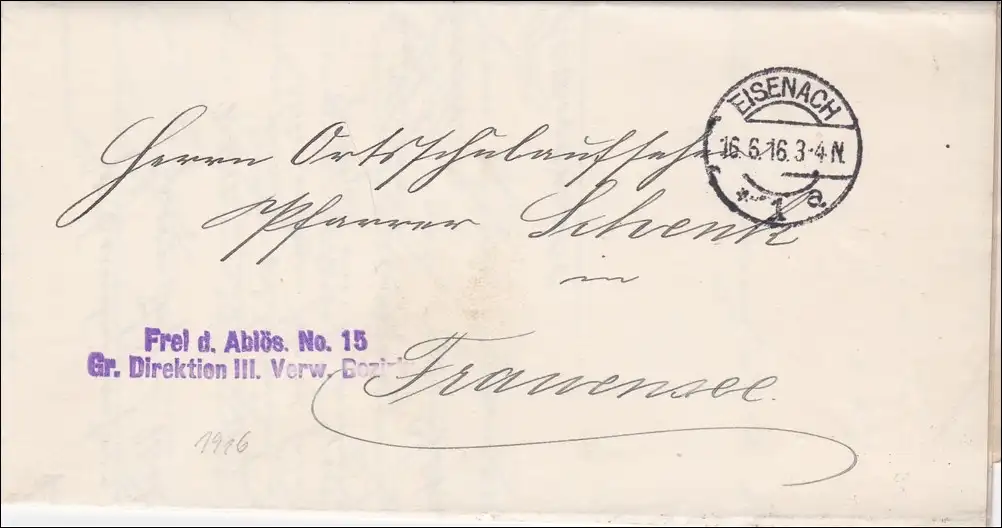 EISENACH
16.6.16. 3-4 N.
* 1 a
Herrn Ortsschulaufseher
Pfarrer Schenk
in
Frauensee.
Frei d. Ablös. No. 15
Gr. Direktion III. Verw. Bezirk
1916